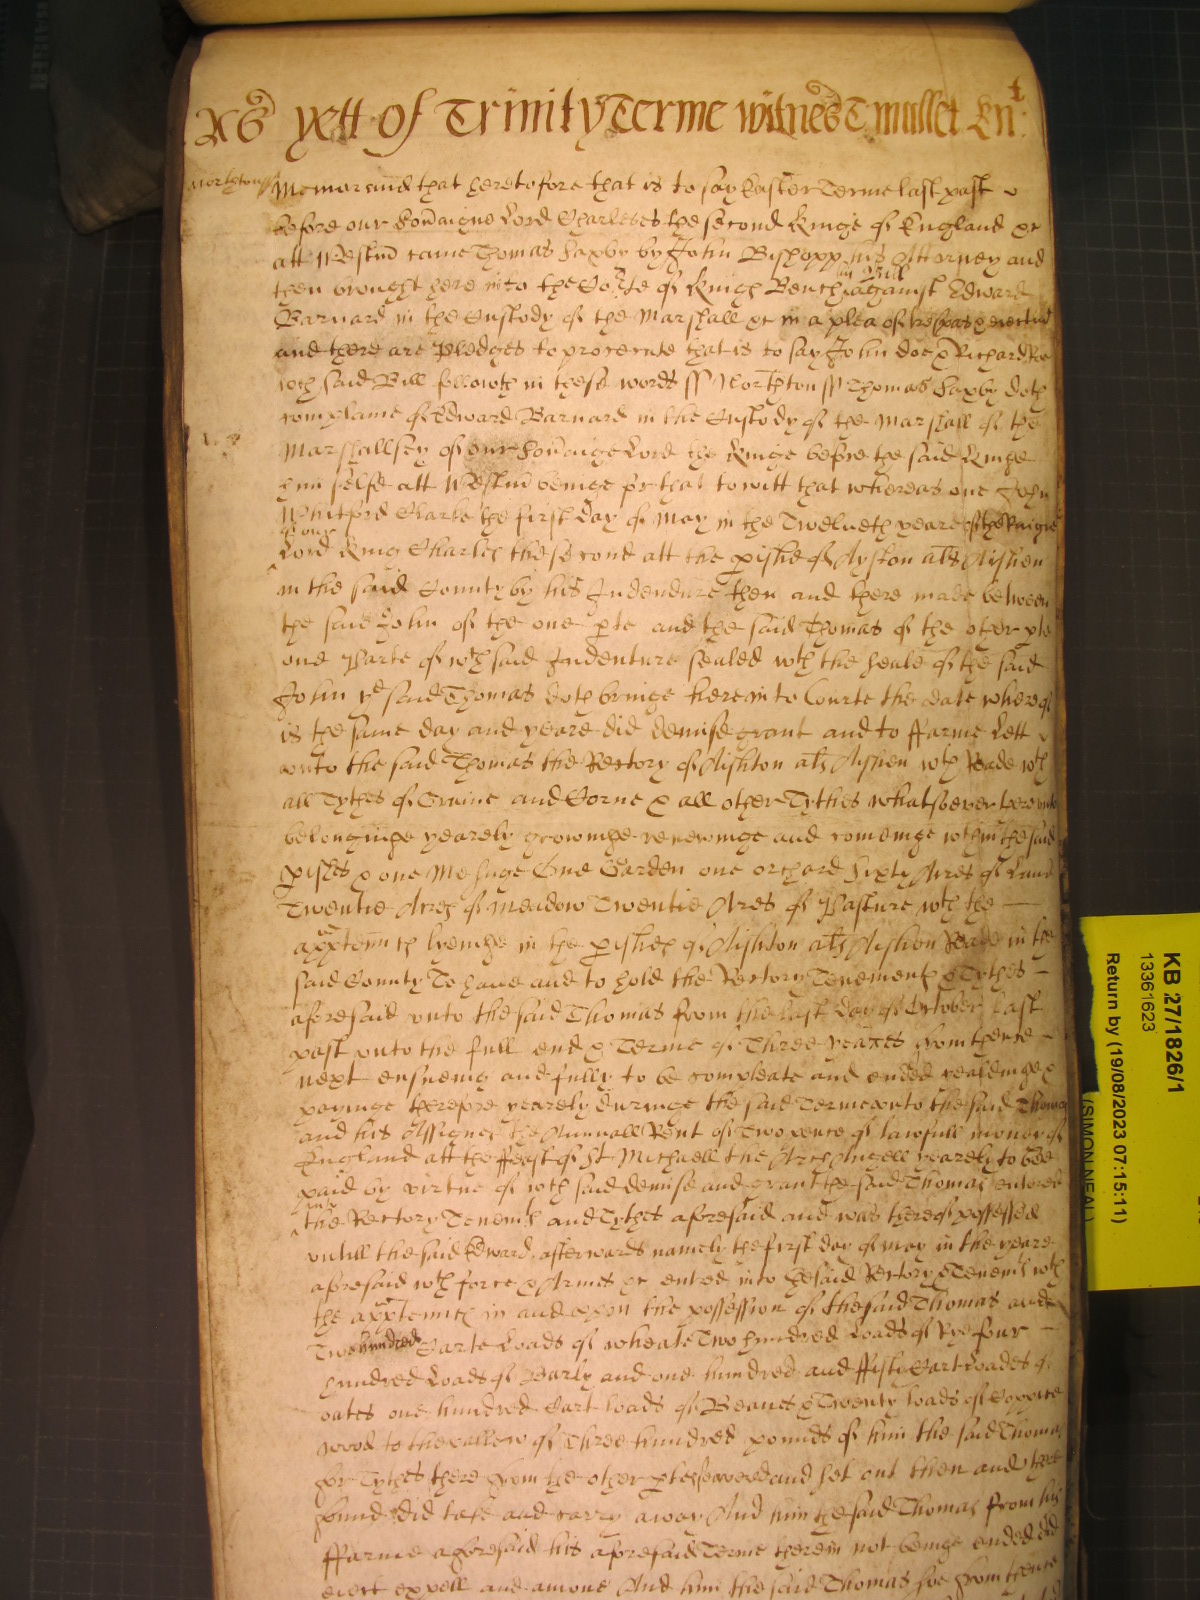 yett of Trinity Terme witnes T mallet Kn:t
Northton ss Memorand that heretofore that is to say Easter Terme last past
before our Soveraigne Lord Charles the second Kinge of England &c
att Westm came Thomas Saxby by John Bishopp his Atturney and
then brought here into the Courte of Kings Bench his Bill against Edward
Barnard in the Custody of the Marshall &c in a plea of trespas & eiectmt
and there are Pledges to prosecute that is to say John doe & Richard Roe
wch said Bill followth in these words ss Northton ss Thomas Saxby doth
complaine of Edward Barnard in the Custody of the Marshall of the
Marshallsey of our Soveraigne Lord the Kinge before the said Kinge
him selfe att Westm beinge for that to witt that whereas one John
Whitford Clarke the first day of May in the Twelveth yeare of the Raigne
of our
Lord King Charles the second att the pishe of Ayston als Aishen
in the said County by his Indendure then and there made betweene
the said John of the one pte and the said Thomas of the other pte
one Parte of wch said Indenture sealed wth the seale of the said
John ye said Thomas doth bringe here in to Courte the date whereof
is the same day and yeare did demise grant and to ffarme Lett
unto the said Thomas the Rectory of Aishton als Aishen wth Roade wth
all Tythes of Graine and Corne & all other Tythes whatsoever there unto
belonginge yearely growinge renewinge and cominge wthin the said
pishes & one Messuage One Garden one orchard Sixty Acres of Land
Twentie Acres of Meadow Twentie Acres of Pasture wth the
apptennces lyeinge in the pishes of Aishton als Aishen Roade in the
said County To have and to hold the Rectory Tenements & Tythes
aforesaid unto the said Thomas from the last day of October last
past unto the full end & Terme of Three yeares from thence
next ensueing and fully to be compleate and ended yealdinge &
payinge therefore yearely duringe the said Terme unto the said Thomas
and his Assignes the Annuall Rent of Two pence of lawfull money of
England att the ffeast of St Michaell the Arch Angell yearely to bee
paid by virtue of wch said demise and grant the said Thomas entered
into
the Rectory Tenemts and Tythes aforesaid and was thereof possessed
untill the said Edward afterwards namely the first day of may in the yeare
aforesaid wth force & Armes &c entred into the said Rectory & Tenemts wth
the apptennces in and upon the possession of the said Thomas and
Two hundred Carte Loads of wheate Two hundred Loads of Rye four
hundred Loads of Barly and one hundred and ffifty Cart Loades of
oates one hundred Cart loads of Beanes & Twenty loads of Coppice
wood to the vallew of Three hundred pounds of him the said Thomas
for Tythes there from the other ptes severed and set out then and there
found did take and carry away And him the said Thomas from his
ffarme aforesaid his aforesaid Terme therein not beinge ended did
eiect expell and amove And him the said Thomas soe from thence
KB 27/1826/1
13361623
Return by (19/08/2023 07:15:11)
(SIMON NEAL)